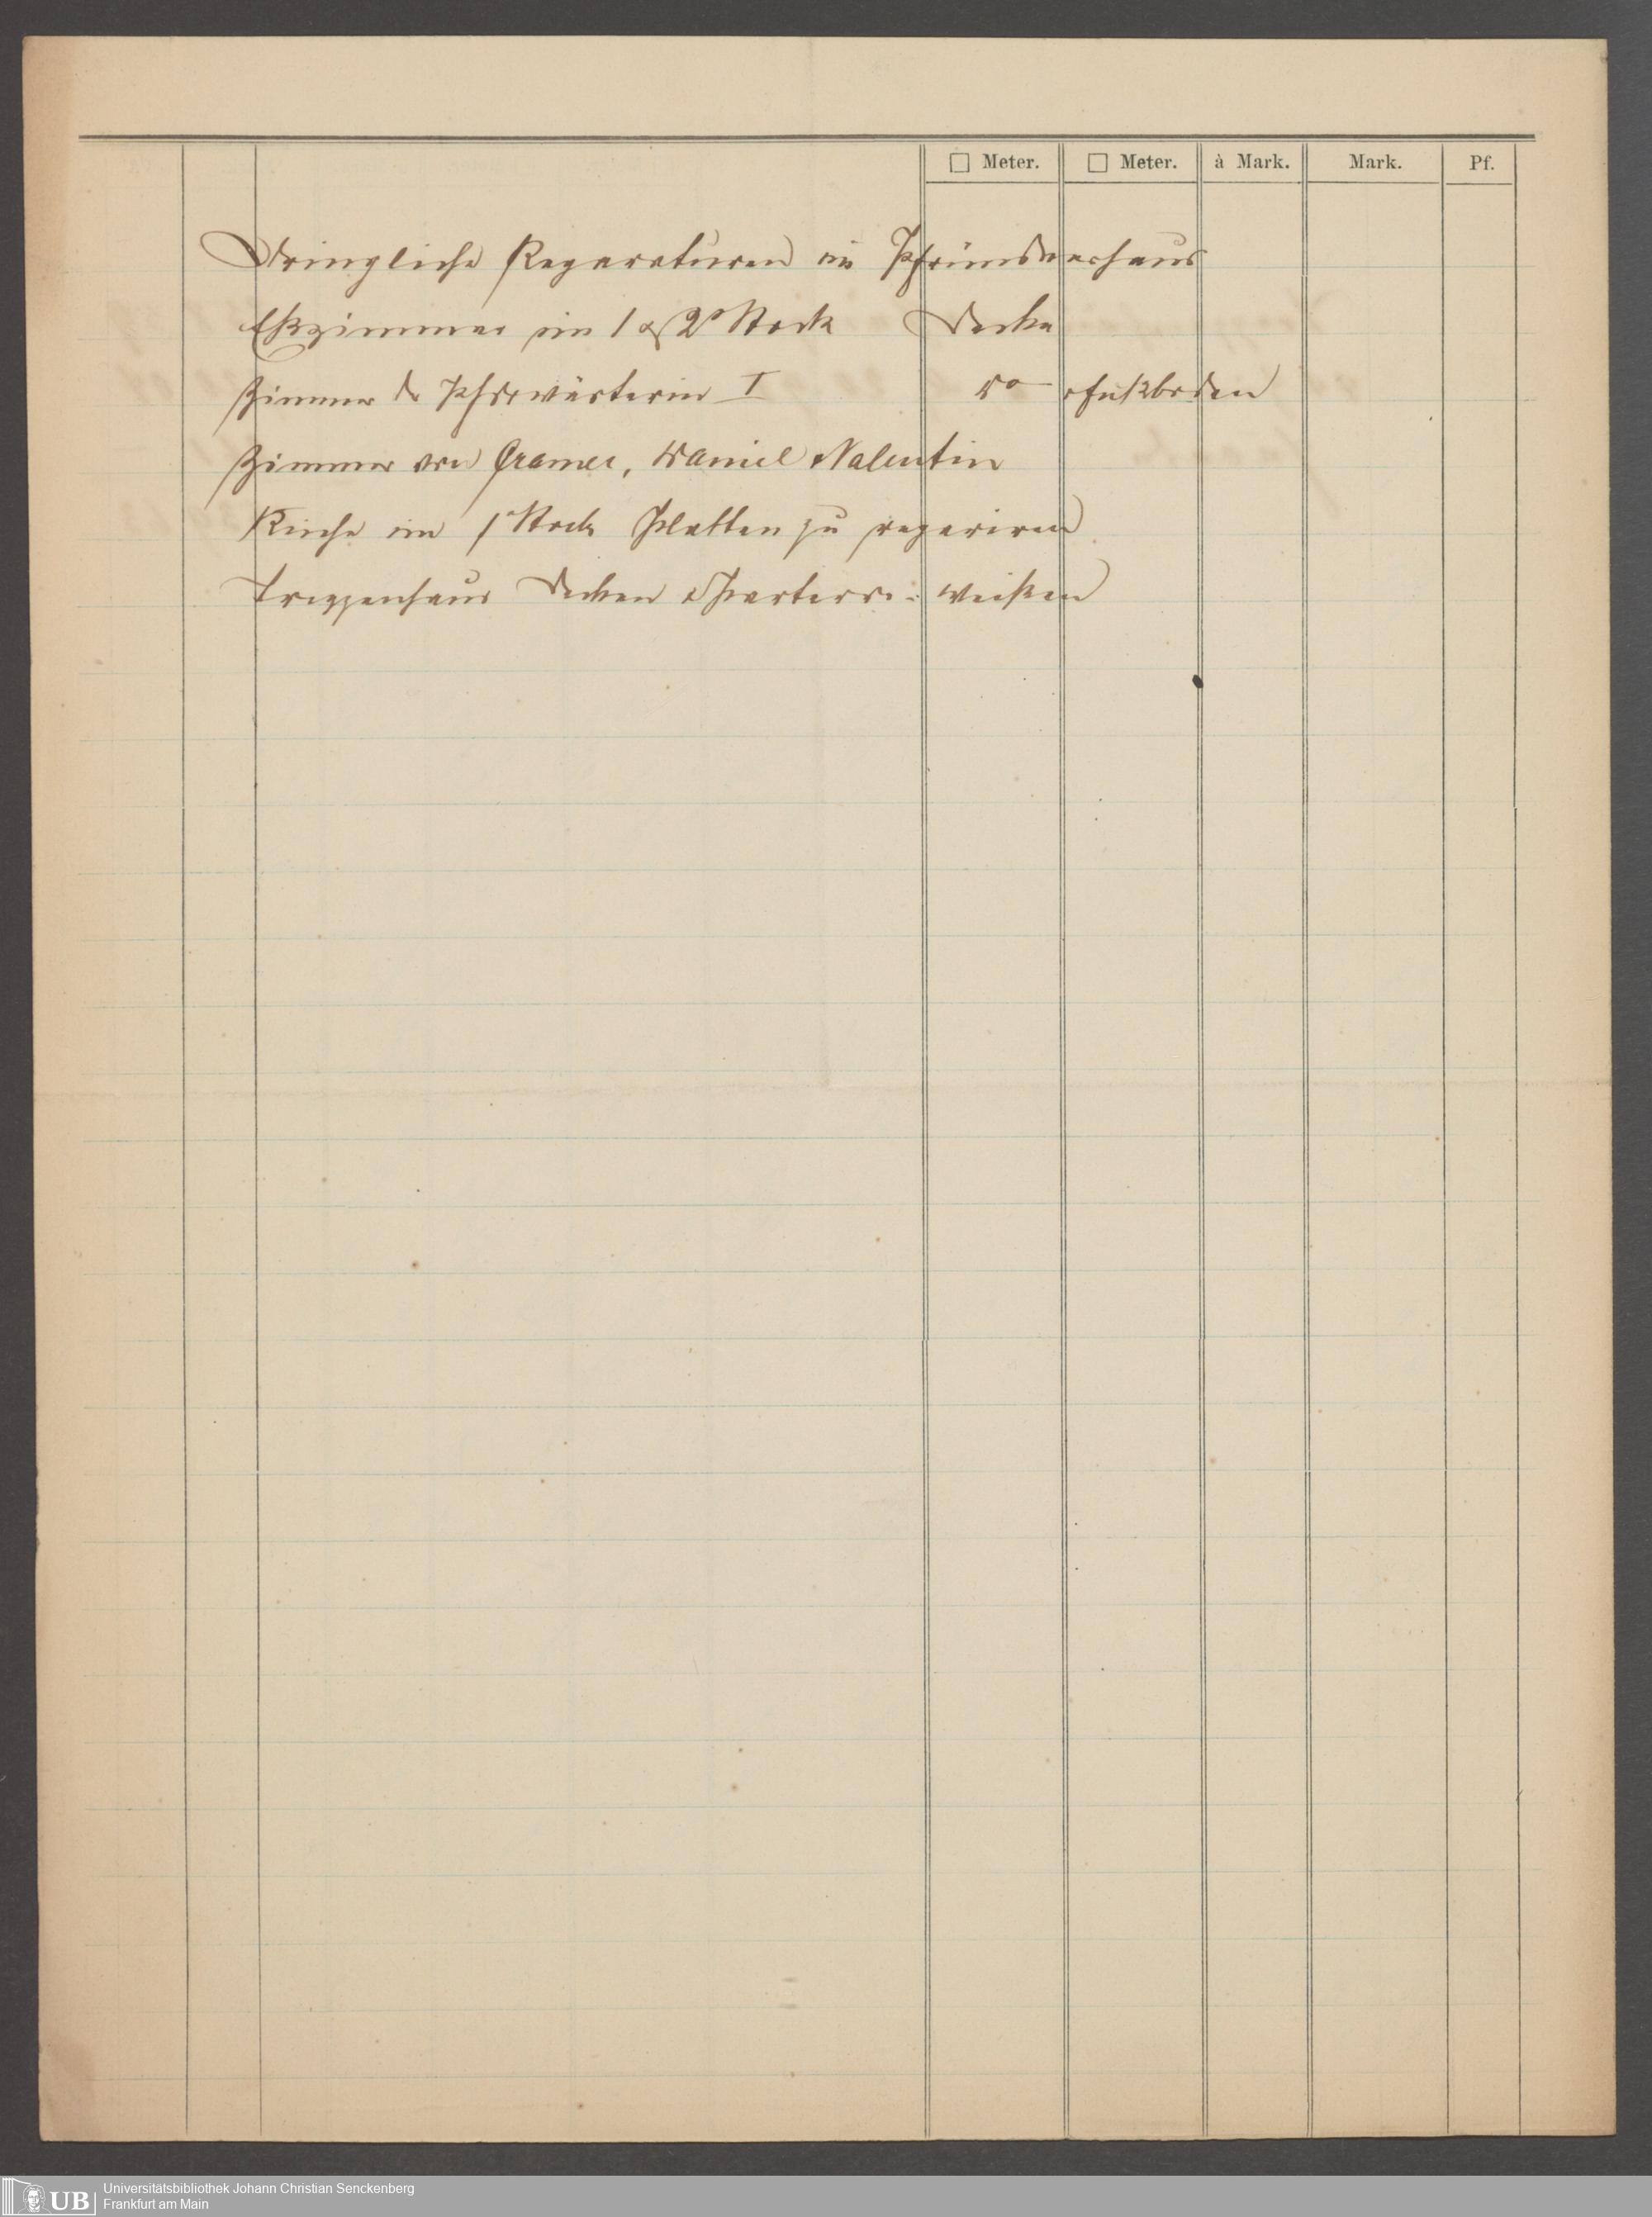 □ Meter. □ Meter. à Mark. Mark. Pf.
Dringliche Reparaturen im Pfründnerhaus
Eßzimmer im 1 & 2 Stock Decke
Zimmer d. I do Fußboden
Zimmer von Cramer, Daniel Valentin
Küche im 1 Stock Platten zu repariren
Treppenhaus Decken Parterre weißen
UB
Universitätsbibliothek Johann Christian Senckenberg
Frankfurt am Main